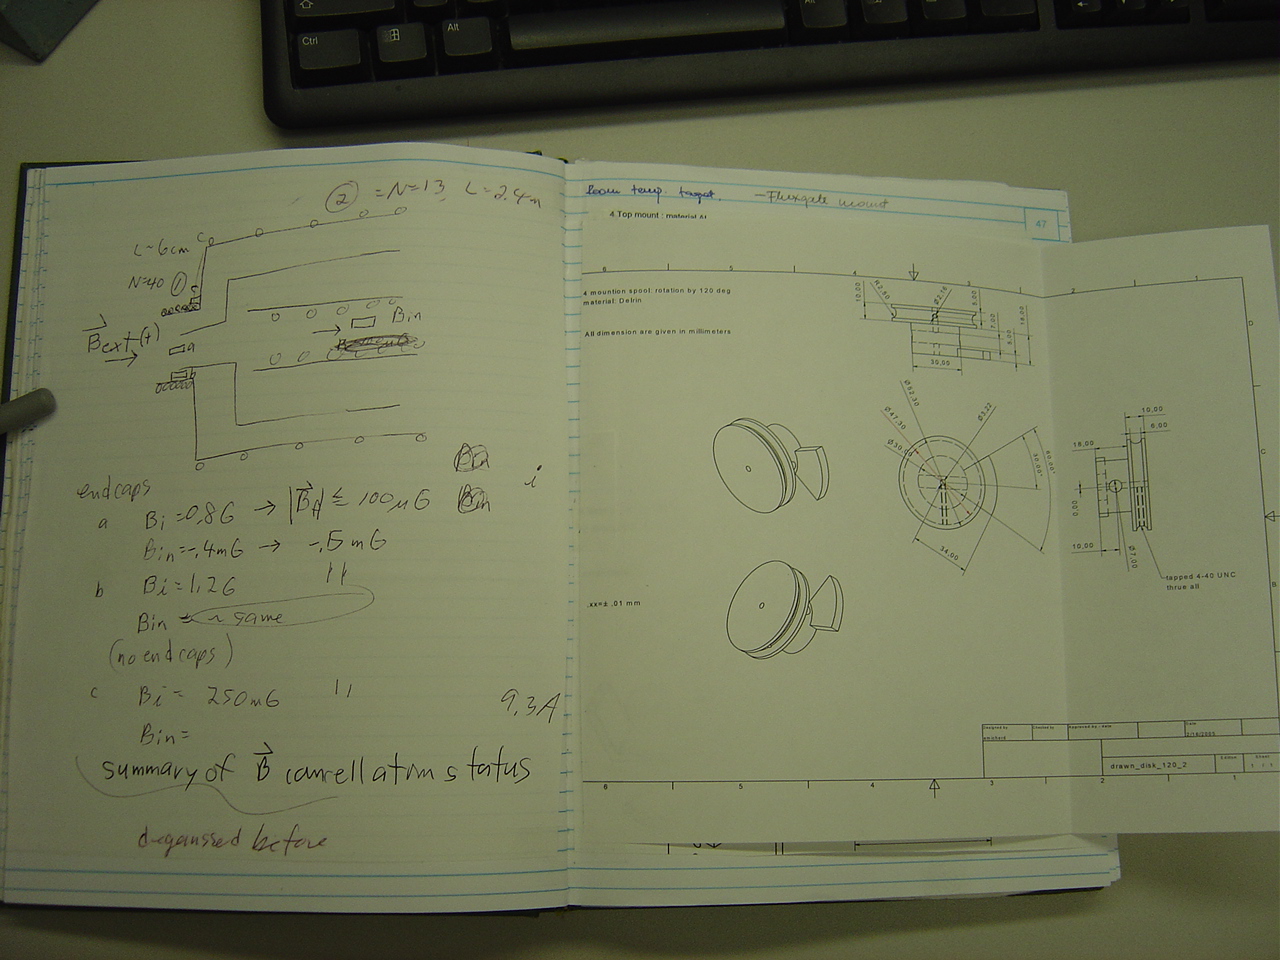 Ctrl
Alt
Alt
② = N=13, L=2.4m
L=6cm
c
N=40 ①
Bin
B⃗ext(t)
a
b
endcaps
i
a Bi=0.8G → |B⃗| ≤ 100μG
Bin=-.4mG → -.5mG
b Bi=1.2G 〃
Bin = ~ same
(no endcaps)
c Bi= 250mG 〃
9.3A
Bin=
summary of B⃗ cancellation status
degaussed before
Room temp. target. - Fluxgate mount
4 Top mount : material Al
47
6 5 4 3 2 1
4 mountion spool: rotation by 120 deg
material: Delrin
All dimension are given in millimeters
10,00
R2,50
Ø2,16
5,00
7,00
18,00
5,00
30,00
D
Ø52,30
Ø47,30
Ø3,22
34,00
10,00
6,00
16,00
0,00
10,00
Ø7,00
C
B
tapped 4-40 UNC
thrue all
.xx=± .01 mm
Designed by
Checked by
Approved by - date
Date
drawn_disk_120_2
Edition
Sheet
1 / 1
6 5 4 3 2 1